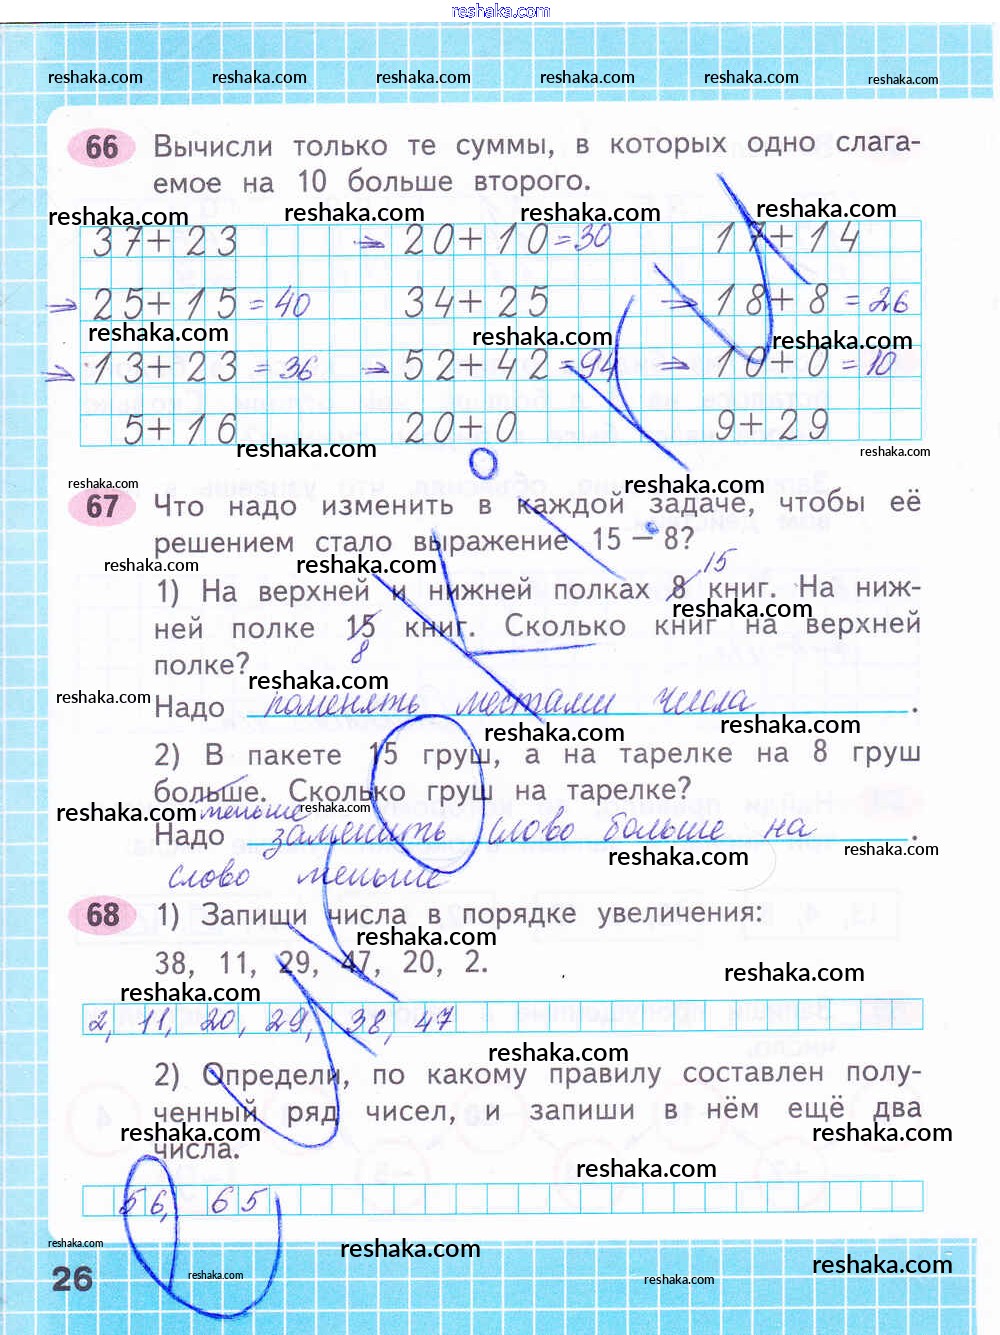 reshaka.com
reshaka.com reshaka.com reshaka.com reshaka.com reshaka.com reshaka.com
66 Вычисли только те суммы, в которых одно слага-
емое на 10 больше второго.
reshaka.com reshaka.com reshaka.com reshaka.com
37+23 → 20+10=30 17+14
→ 25+15=40 34+25 → 18+8=26
reshaka.com reshaka.com reshaka.com
→ 13+23=36 → 52+42=94 → 10+0=10
5+16 20+0 9+29
reshaka.com reshaka.com
reshaka.com
67 Что надо изменить в каждой задаче, чтобы её
решением стало выражение 15 – 8?
reshaka.com reshaka.com
15
1) На верхней и нижней полках 8 книг. На ниж-
reshaka.com
ней полке 15 книг. Сколько книг на верхней
8
полке?
reshaka.com reshaka.com
Надо поменять местами числа.
reshaka.com reshaka.com
2) В пакете 15 груш, а на тарелке на 8 груш
больше. Сколько груш на тарелке?
меньше
reshaka.com reshaka.com
Надо заменить слово больше на.
reshaka.com reshaka.com
слово меньше
68 1) Запиши числа в порядке увеличения:
reshaka.com
38, 11, 29, 47, 20, 2.
reshaka.com reshaka.com
2, 11, 20, 29, 38, 47
reshaka.com
2) Определи, по какому правилу составлен полу-
ченный ряд чисел, и запиши в нём ещё два
reshaka.com reshaka.com
числа.
reshaka.com
56, 65
reshaka.com reshaka.com
26 reshaka.com reshaka.com reshaka.com